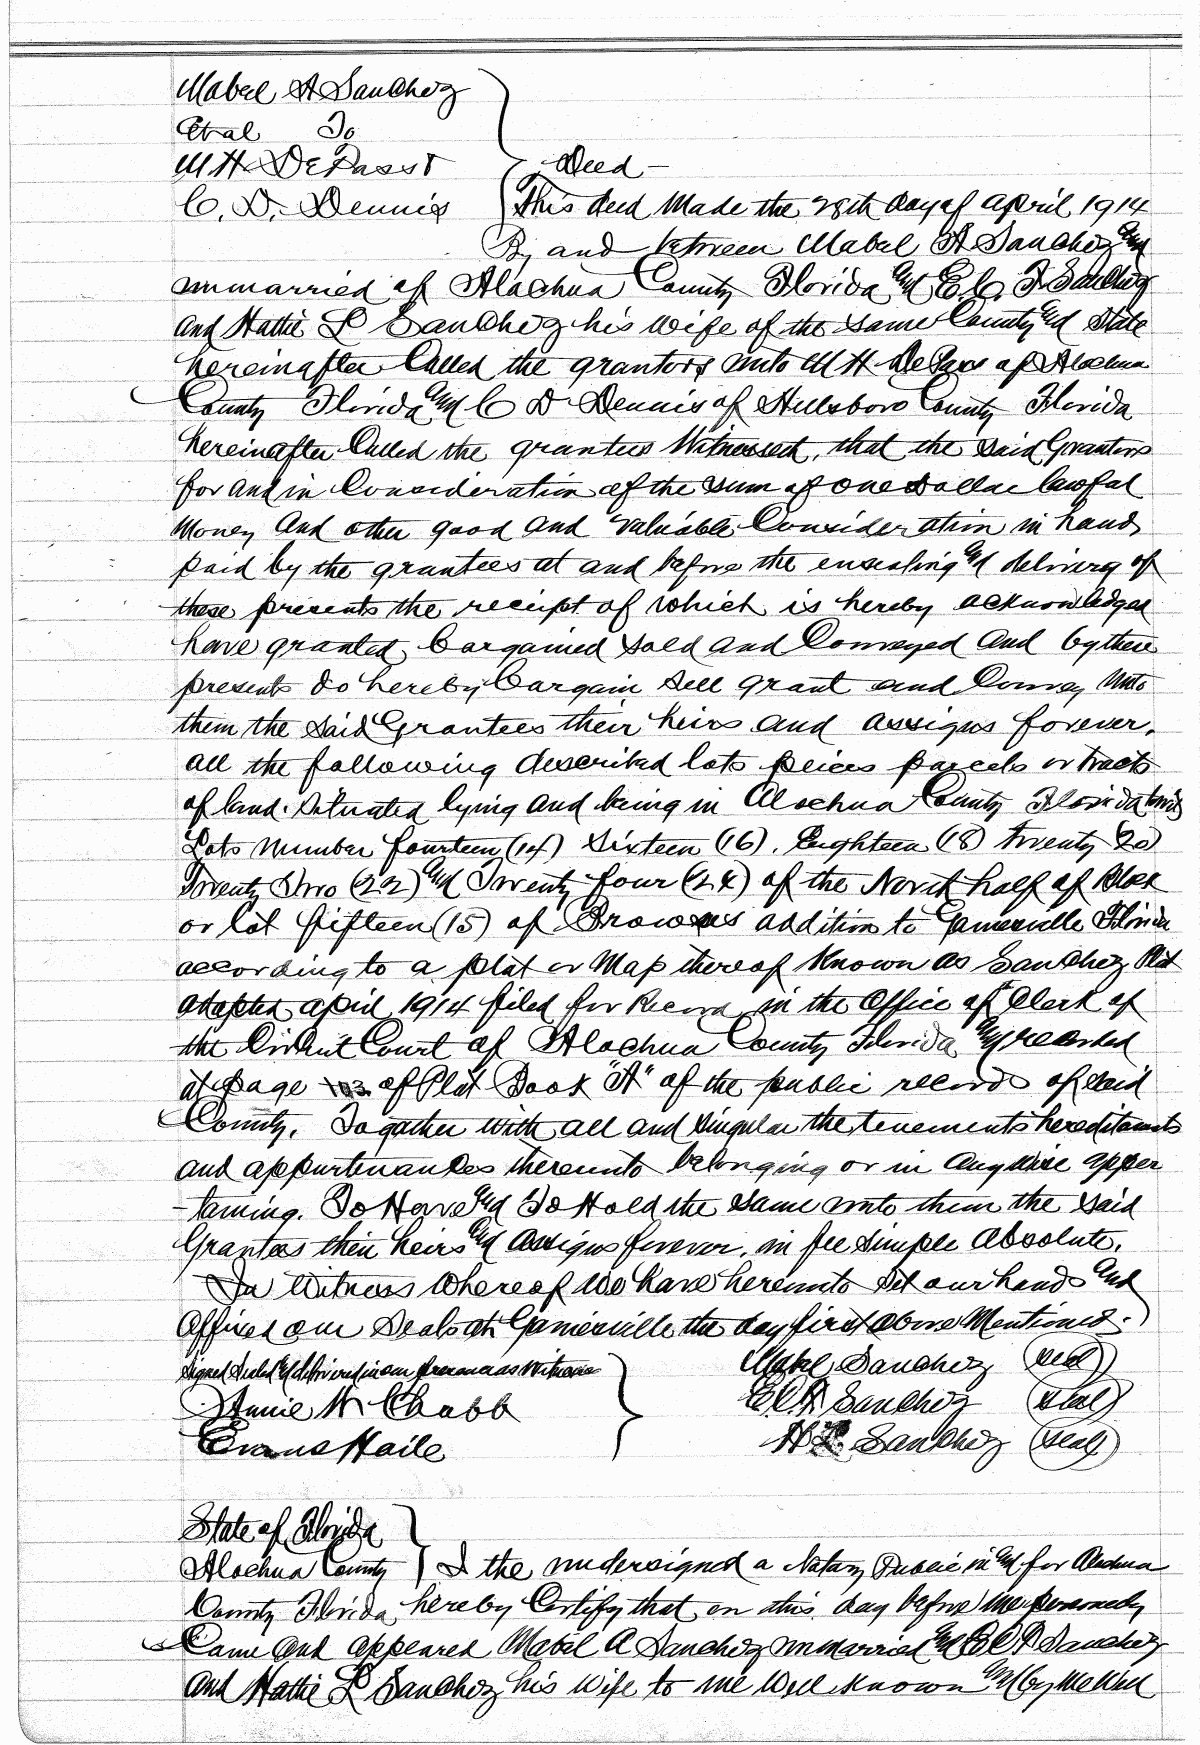 Mabel A Sanchez
Et al To
W H DePass &
C. D. Dennis
Deed -
This deed Made the 28th day of April 1914
By and between Mabel A Sanchez and
unmarried of Alachua County Florida and E. C. F. Sanchez
and Hattie L Sanchez his wife of the same County and State
hereinafter Called the grantors unto W H DePass of Alachua
County Florida and C D Dennis of Hillsboro County Florida
hereinafter Called the grantees Witnessed, that the said Grantors
for and in Consideration of the sum of one Dollar lawful
money and other good and valuable Consideration in hand
paid by the grantees at and before the ensealing and delivery of
these presents the receipt of which is hereby acknowledged
have granted, bargained sold and Conveyed and by these
presents do hereby bargain sell grant and Convey unto
them the said Grantees their heirs and assigns forever,
all the following described lots peices parcels or tracts
of land. Situated lying and being in Alachua County Florida towit
Lots number fourteen (14) Sixteen (16), Eughteen (18) twenty (20)
Twenty Two (22) and Twenty four (24) of the North half of Block
or lot fifteen (15) of Browns addition to Gainesville Florida
according to a plat or Map thereof Known as Sanchez Plat
adopted april 1914 filed for Record in the Office of Clerk of
the Circuit Court of Alachua County Florida and recorded
at page 103 of Plat Book "A" of the public records of said
County. Together with all and singular the tenements hereditaments
and appurtenances thereunto belonging or in anywise apper
-taining. To Have and To Hold the same unto them the said
Grantees their heirs and assigns forever, in fee simple Absolute.
In Witness Whereof We have hereunto set our hands and
Affixed our Seals at Gainesville the day first above Mentioned.
Signed Sealed and delivered in our presence as Witness
Mabel Sanchez (seal)
Annie W Chubb
E C F Sanchez (seal)
Evans Haile
H L Sanchez (seal)
State of Florida
Alachua County I the undersigned a Notary Public in and for Alachua
County Florida, hereby Certify that on this day before me personally
Came and appeared Mabel A Sanchez unmarried and E C F Sanchez
and Hattie L Sanchez his wife to me well known and by me well